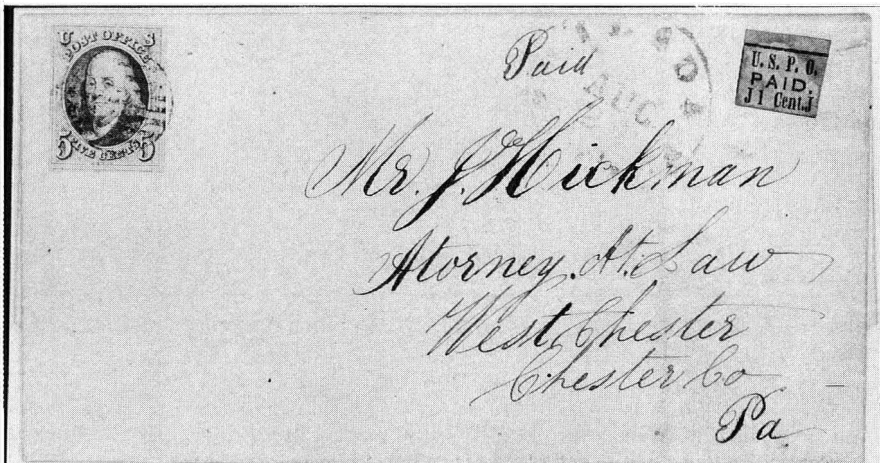 U S
POST OFFICE
FIVE CENTS
5 5
Paid
AUG
U. S. P. O.
PAID.
J 1 Cent. J
Mr. J. Hickman
Attorney. At. Law
West Chester
Chester Co
Pa